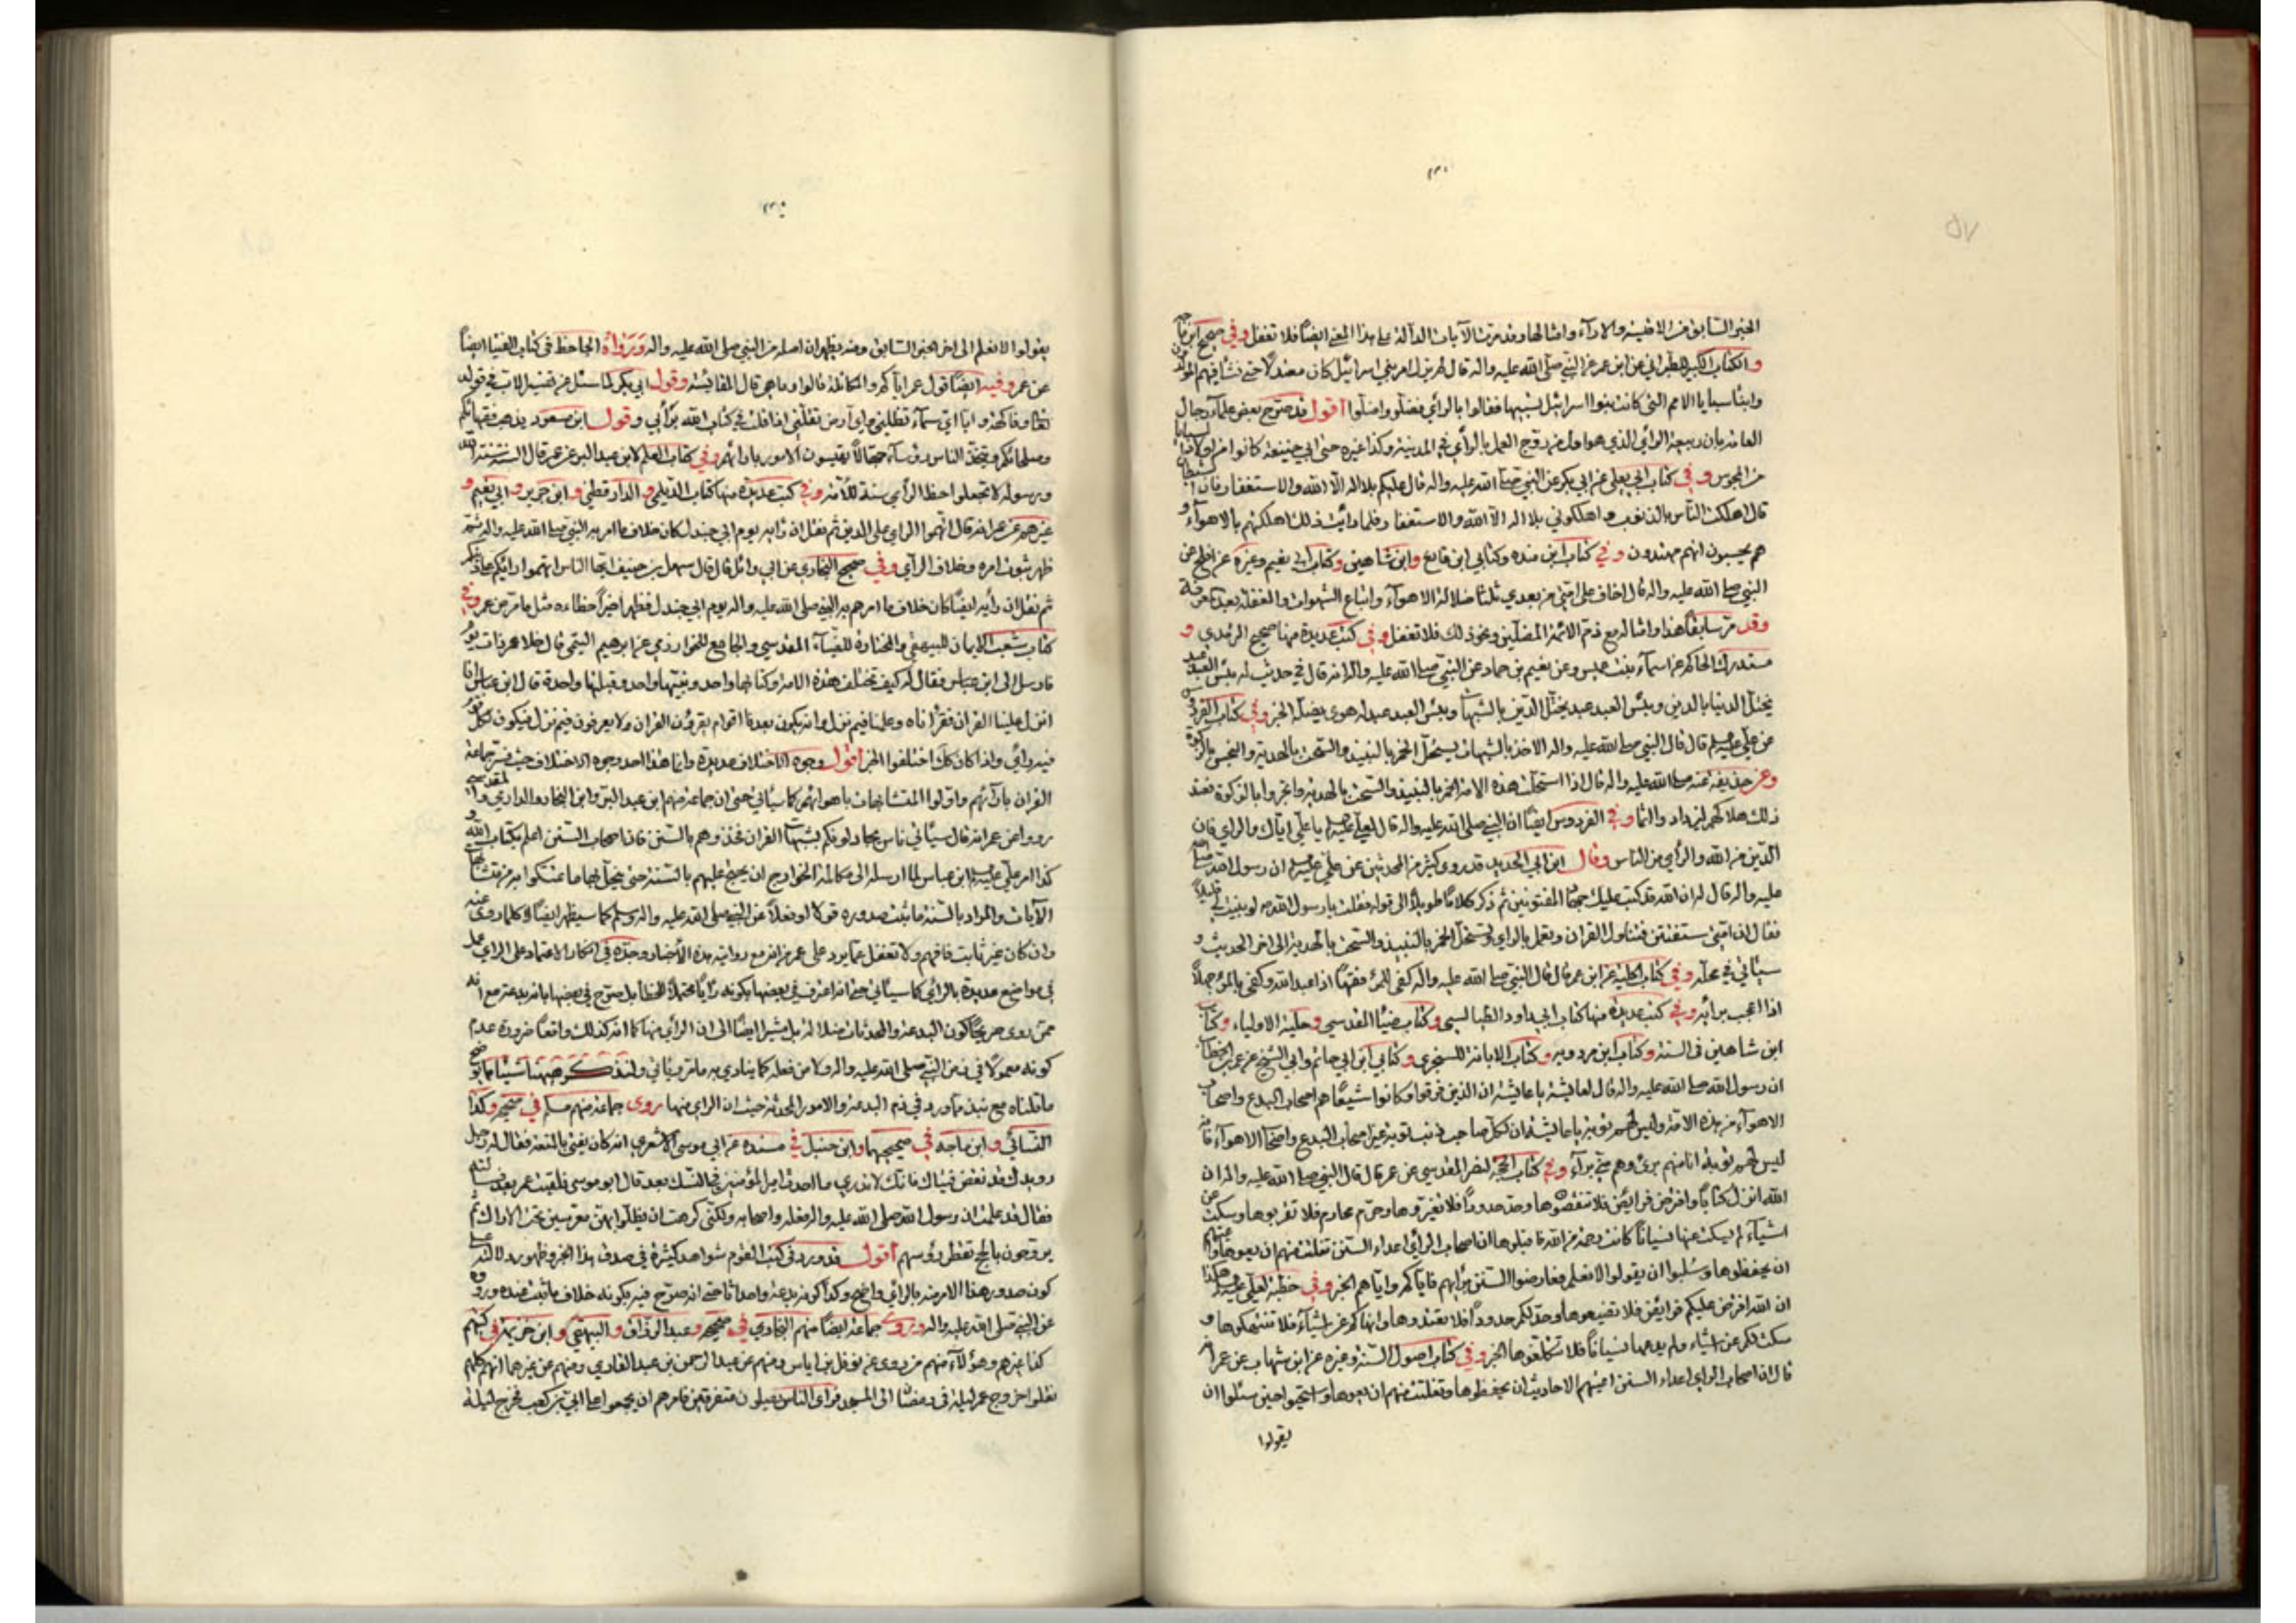 الخبر السابق من الاقيسة والاراء وامثالها وقد مرت الآيات الدالة على هذا المعنى ايضا فلا تغفل وفي صحيح ابن ماجه
والكتاب الكبير للطبراني عن ابن عمر عن النبي صلى الله عليه واله قال لم يزل امر بني اسرائيل كان معتدلا حتى نشأ فيهم المولدون
وابناء سبايا الامم التي كانت بنوا اسرائيل تسبيها فقالوا بالرأي فضلوا واضلوا اقول قد صرح بعض علماء رجال
العامة بان ربيعة الرأي الذي هو اول من روج العمل بالرأي في المدينة وكذا غيره حتى ابي حنيفة كانوا من اولاد سبايا
المجوس وفي كتاب ابي يعلى عن ابي بكر عن النبي صلى الله عليه واله قال عليكم بلا اله الا الله والاستغفار فان الشيطان
قال اهلكت الناس بالذنوب واهلكوني بلا اله الا الله والاستغفار فلما رأيت ذلك اهلكتهم بالاهواء و
هم يحسبون انهم مهتدون وفي كتاب ابن منده وكتابي ابن قانع وابن شاهين وكتاب ابي نعيم وغيره عن افلح عن
النبي صلى الله عليه واله قال اخاف على امتي من بعدي ثلثا ضلالة الاهواء واتباع الشهوات والغفلة بعد المعرفة
وقد مر سابقا هذا وامثاله مع ذم الائمة المضلين ونحو ذلك فلا تغفل وفي كتب عديدة منها صحيح الترمذي و
مستدرك الحاكم عن اسماء بنت عميس وعن نعيم بن حماد عن النبي صلى الله عليه واله انه قال في حديث له بئس العبد عبد
يختل الدنيا بالدين وبئس العبد عبد يختل الدين بالشبهات وبئس العبد عبد له هوى يضله الخبر وفي كتاب الفردوس
عن علي عليه السلم قال قال النبي صلى الله عليه واله الاخذ بالشبهات يستحل الخمر بالنبيذ والسحت بالهدية والبخس بالزكوة
وعن حذيفة عنه صلى الله عليه واله قال اذا استحلت هذه الامة الخمر بالنبيذ والسحت بالهدية واتجروا بالزكوة فعند
ذلك هلاكهم ليزداد واثما وفي الفردوس ايضا ان النبي صلى الله عليه واله قال لعلي عليه السلم يا علي اياك والرأي فان
الدين من الله والرأي من الناس وقال ابن ابي الحديد قد روى كثير من المحدثين عن علي عليه السلم ان رسول الله صلى الله
عليه واله قال له ان الله قد كتب عليك جهاد المفتونين ثم ذكر كلاما طويلا الى قوله فقلت يا رسول الله لو بينت لي قليلا
فقال ان امتي ستفتتن فتتاول القران وتعمل بالرأي وتستحل الخمر بالنبيذ والسحت بالهدية الى اخر الحديث و
سيأتي في محله وفي كتاب الحلية عن ابن عمر قال قال النبي صلى الله عليه واله كفى للمرء فقها اذا عبد الله وكفى بالمرء جهلا
اذا اعجب برأيه وفي كتب عديدة منها كتاب ابي داود الطيالسي وكتاب ضياء المقدسي وحلية الاولياء وكتاب
ابن شاهين في السنة وكتاب ابن مردويه وكتاب الابانة للسجزي وكتابي ابن ابي حاتم وابي الشيخ عن عمر بن الخطاب
ان رسول الله صلى الله عليه واله قال لعايشة يا عايشة ان الذين فرقوا وكانوا شيعا هم اصحاب البدع واصحاب
الاهواء من هذه الامة وليس لهم توبة يا عايشة ان لكل صاحب ذنب توبة غير اصحاب البدع واصحاب الاهواء فانه
ليس لهم توبة انا منهم برئ وهم مني براء وفي كتاب الحجة لنصر المقدسي عن عمر قال قال النبي صلى الله عليه واله ان
الله انزل كتابا وافرض فرايض فلا تنقصوها وحد حدودا فلا تغيروها وحرم محارم فلا تقربوها وسكت عن
اشياء لم يسكت عنها نسيانا كانت رحمة من الله فاقبلوها ان اصحاب الرأي اعداء السنن تفلتت منهم ان يعوها واعيتهم
ان يحفظوها وسلبوا ان يقولوا لا نعلم فعارضوا السنن برأيهم فاياكم واياهم الخبر وفي خطبة لعلي عليه السلم هكذا
ان الله افترض عليكم فرايض فلا تضيعوها وحد لكم حدودا فلا تعتدوها وانهاكم عن اشياء فلا تنتهكوها و
سكت لكم عن اشياء ولم يدعها نسيانا فلا تتكلفوها الخبر وفي كتاب اصول السنة وغيره عن ابن شهاب عن عمر انه
قال ان اصحاب الرأي اعداء السنن اعيتهم الاحاديث ان يحفظوها وتفلتت منهم ان يعوها واستحيوا حين سئلوا ان
يقولوا
يقولوا لا نعلم الى اخر الخبر السابق ومنه يظهر ان اصله من النبي صلى الله عليه واله ورواه الجاحظ في كتاب الفتيا ايضا
عن عمر وفيه ايضا قول عمر اياكم والمكائلة قالوا وما هي قال المقائسة وقول ابي بكر لما سئل عن تفسير الاب في قوله
تعالى وفاكهة وابا اي سماء تظلني واي ارض تقلني اذا قلت في كتاب الله برأيي وقول ابن مسعود يذهب فقهائكم
وصلحائكم ويتخذ الناس رؤساء جهالا يقيسون الامور بارائهم وفي كتاب العلم لابن عبد البر عن عمر قال السنة ما سنه الله
ورسوله لا تجعلوا خطا الرأي سنة للامة وفي كتب عديدة منها كتاب الديلمي والدار قطني وابن جرير وابي نعيم و
غيرهم عن عمر انه قال اتهموا الرأي على الدين ثم نقل ان رأيه يوم ابي جندل كان خلاف ما امر به النبي صلى الله عليه واله ثم
ظهر ثبوت امره وخلاف الرأي وفي صحيح البخاري عن ابي وائل قال قال سهل بن حنيف ايها الناس اتهموا رأيكم على دينكم
ثم نقل ان رأيه ايضا كان خلاف ما امرهم به النبي صلى الله عليه واله يوم ابي جندل فظهر اخيرا خطاءه مثل ما مر من عمر وفي
كتاب شعب الايمان للبيهقي والمختارة للضياء المقدسي والجامع للخوارزمي عن ابرهيم التيمي قال خلا عمر ذات يوم
فارسل الى ابن عباس فقال له كيف تختلف هذه الامة وكتابها واحد ونبيها واحد وقبلتها واحدة قال ابن عباس انا
انزل علينا القران فقرأناه وعلمنا فيم نزل وانه يكون بعدنا اقوام يقرؤن القران ولا يعرفون فيم نزل فيكون لكل قوم
فيه رأي واذا كان كذلك اختلفوا الخبر اقول وجوه الاختلاف عديدة وانما هذا احد وجوه الاختلاف حيث فسر جماعة
القران بارائهم واولوا المتشابهات باهوائهم كما سيأتي حتى ان جماعة منهم ابن عبد البر وابن النجار والدارمي والمقدسي
رووا عن عمر انه قال سيأتي ناس يجادلونكم بشبهات القران فخذوهم بالسنن فان اصحاب السنن اعلم بكتاب الله و
كذا امر علي عليه السلم ابن عباس لما ارسله الى مكالمة الخوارج ان يحتج عليهم بالسنة حتى يتجلى بها ما تمسكوا به من متشابهات
الآيات والمراد بالسنة ما ثبت صدوره قولا او فعلا عن النبي صلى الله عليه واله وسلم كما سيظهر ايضا لا كلما روى عنه
وان كان غير ثابت فافهم ولا تغفل عما يرد على عمر من انه مع روايته هذه الاخبار وجده في انكار الاعتماد على الرأي عمل
في مواضع عديدة بالرأي كما سيأتي حتى انه اعترف في بعضها بكونه رأيا محتملا للخطأ بل صرح في بعضها بانه بدعة مع انه
ممن روى صريحا كون البدعة والمحدثات ضلالة بل يشير ايضا الى ان الرأي منها كما انه كذلك واقعا ضرورة عدم
كونه معمولا في زمن النبي صلى الله عليه واله ولا من فعله كما ينادي به ما مر ويأتي ولنذكر ههنا شيئا مما يوضح
ما قلناه مع نبذ مما ورد في ذم البدعة والامور المحدثة حيث ان الرأي منها روى جماعة منهم مسلم في صحيحه وكذا
النسائي وابن ماجه في صحيحيهما وابن حنبل في مسنده عن ابي موسى الاشعري انه كان يفتي بالمتعة فقال له رجل
رويدك قد تفيض فتياك فانك لا تدري ما احدث امير المؤمنين في النسك بعد قال ابو موسى فلقيت عمر بعد فسألته
فقال قد علمت ان رسول الله صلى الله عليه واله فعله واصحابه ولكني كرهت ان يظلوا بهن معرسين تحت الاراك ثم
يروحون بالحج تقطر رؤسهم اقول قد ورد في كتب القوم شواهد كثيرة في صدق هذا الخبر وظهور دلالته على
كون صدور هذا الامر منه بالرأي واضح وكذا كونه بدعة واحداثا حتى انه صرح فيه بكونه خلاف ما ثبت عنده وروى
عن النبي صلى الله عليه واله وروى جماعة ايضا منهم البخاري في صحيحه وعبد الرزاق والبيهقي وابن خزيمة في كتبهم
كذا غيرهم وهؤلاء منهم من روى عن نوفل بن اياس ومنهم عن عبد الرحمن بن عبد القاري ومنهم عن غيرهما انهم كلهم
نقلوا خروج عمر ليلة في رمضان الى المسجد فرأى الناس يصلون متفرقين فامرهم ان يجمعوا على ابي بن كعب فخرج ليلة